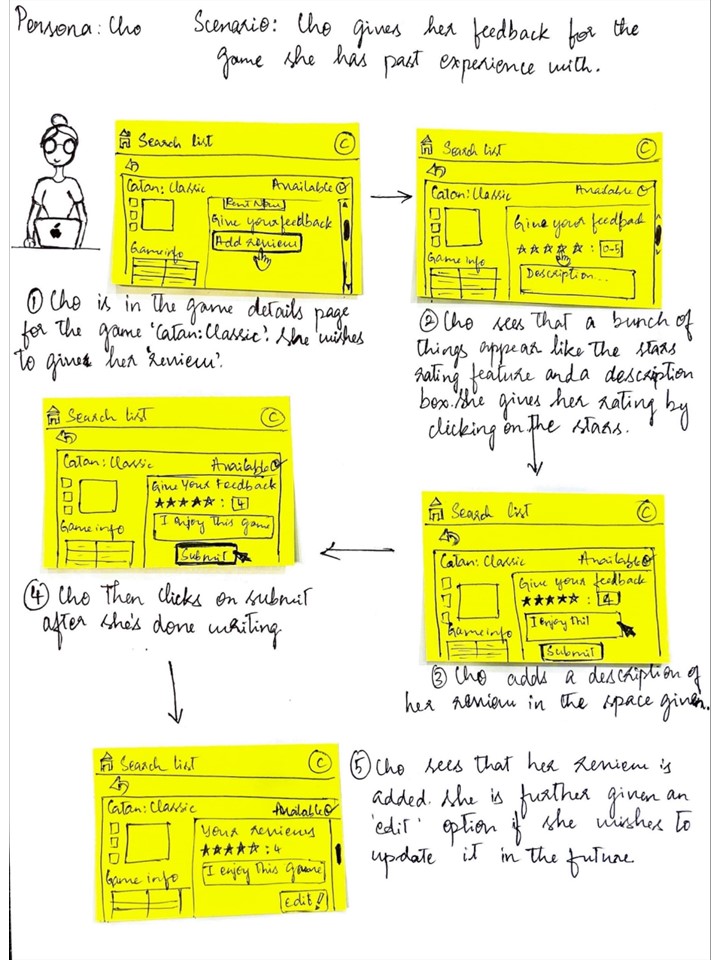 Persona: Cho
Scenario: Cho gives her feedback for the
game she has past experience with.
Search list C
Catan: Classic Available
Rent Now
Give your feedback
Add review
Game info
① Cho is in the game details page
for the game 'Catan: Classic'. She wishes
to give her 'review'.
Search list C
Catan: Classic Available
Give your feedback
: 0-5
Game info
Description...
② Cho sees that a bunch of
things appear like the stars
rating feature and a description
box. She gives her rating by
clicking on the stars.
Search list C
Catan: Classic Available
Give your feedback
: 4
I enjoy this
Game info
Submit
③ Cho adds a description of
her review in the space given.
Search list C
Catan: Classic Available
Give Your Feedback
: 4
I enjoy this game
Game info
Submit
④ Cho then clicks on submit
after she's done writing
Search list C
Catan: Classic Available
Your reviews
: 4
I enjoy this Game
Game info
Edit
⑤ Cho sees that her review is
added. She is further given an
'edit' option if she wishes to
update it in the future.